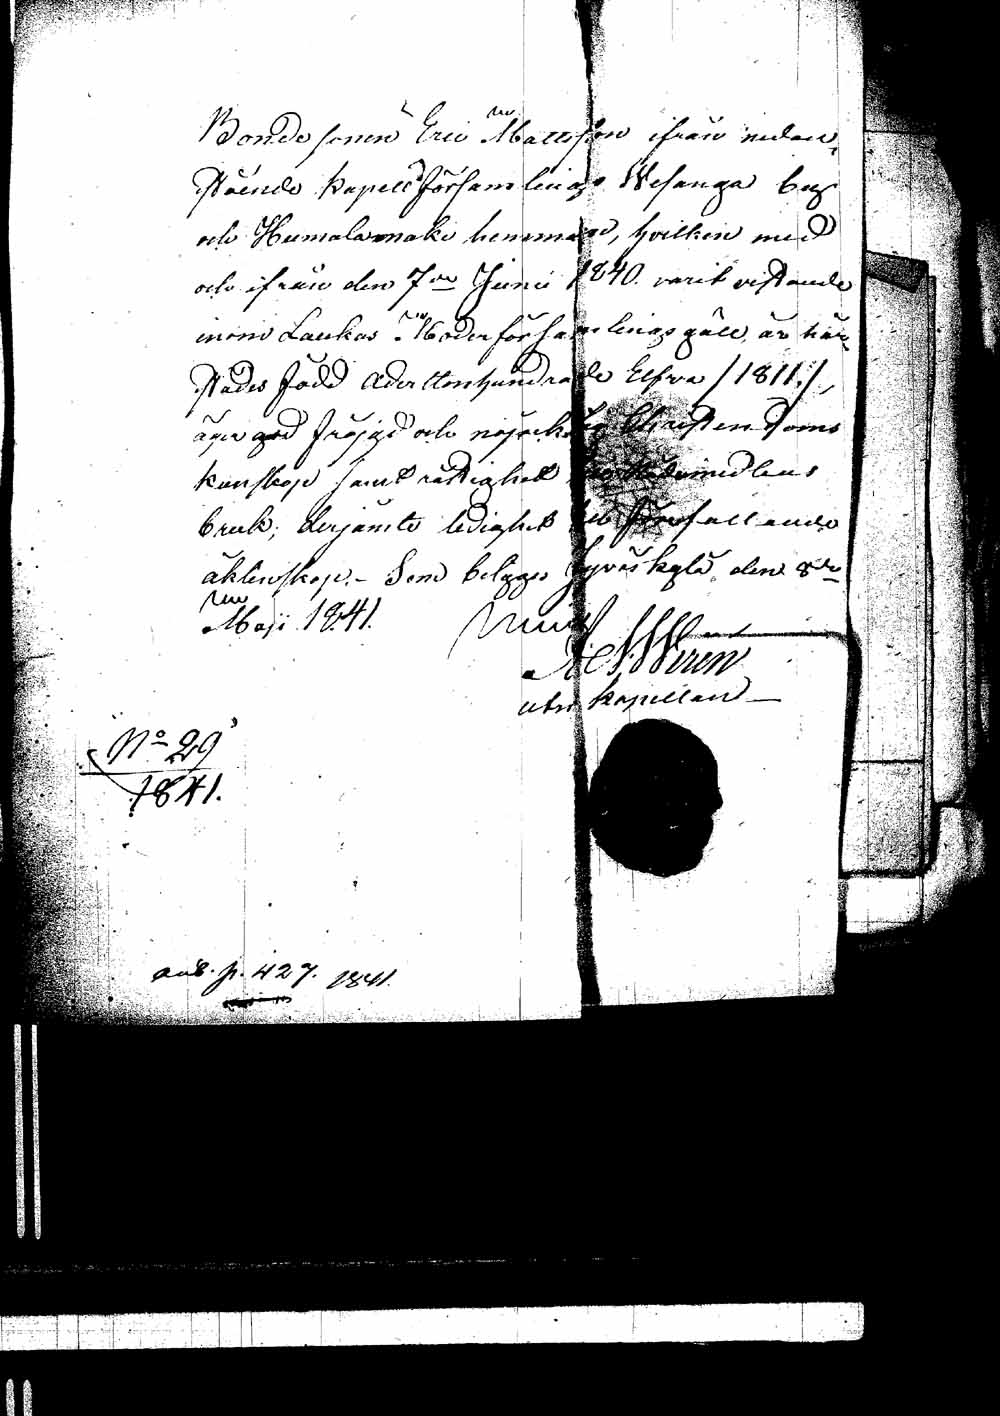 Bondesonen Eric Mattsson ifrån nedan-
stående Kapell Församlings Wesanga by
och Humalamäki hemman, hvilken med
och ifrån den 7de Junii 1840. varit vistande
inom Laukas Moderförsamlings gäll, är här-
städes född Adertonhundrade Elfva /1811./,
äger god fräjgd och nöjacktig Christendoms
kunskap samt rättighet nådemedlens
bruk; derjämte ledighet till förefallande
äktenskap. - Som betygas Jyväskylä den 8de
Maji 1841.
Wiren
utri kapellan
No 29
1841.
anB. p. 427. 1841.